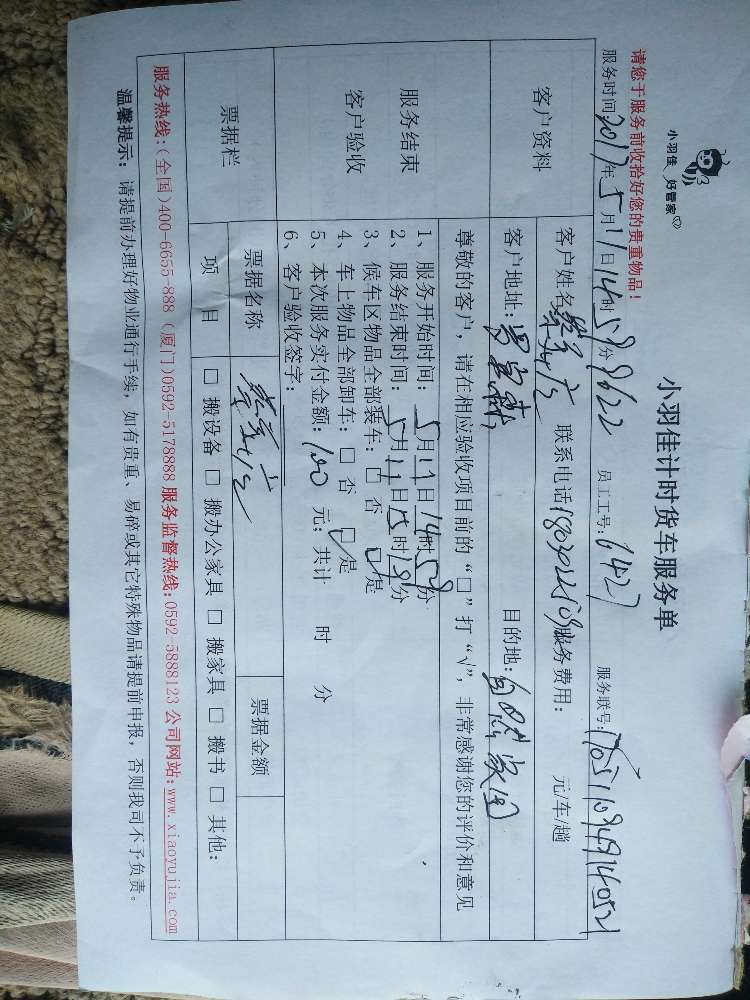 小羽佳 好管家
小羽佳计时货车服务单
请您于服务前收拾好您的贵重物品!
服务时间 2017年5月11日14时59分 员工工号: 6427 服务联号:
客户资料
客户姓名 联系电话 服务费用: 元/车/趟
客户地址: 目的地:
尊敬的客户,请在相应验收项目前的“□”打“√”,非常感谢您的评价和意见
服务结束
客户验收
1、服务开始时间: 5月11日14时59分
2、服务结束时间: 5月11日15时19分
3、候车区物品全部装车: □ 否 □ 是
4、车上物品全部卸车: □ 否 □ 是
5、本次服务实付金额: 100 元; 共计 时 分
6、客户验收签字:
票据栏
票据名称 票据金额
项目 □ 搬设备 □ 搬办公家具 □ 搬家具 □ 搬书 □ 其他:
服务热线:(全国)400-6655-888 (厦门)0592-5178888 服务监督热线:0592-5888123 公司网站:www.xiaoyujia.com
温馨提示: 请提前办理好物业通行手续,如有贵重、易碎或其它特殊物品请提前申报,否则我司不予负责。